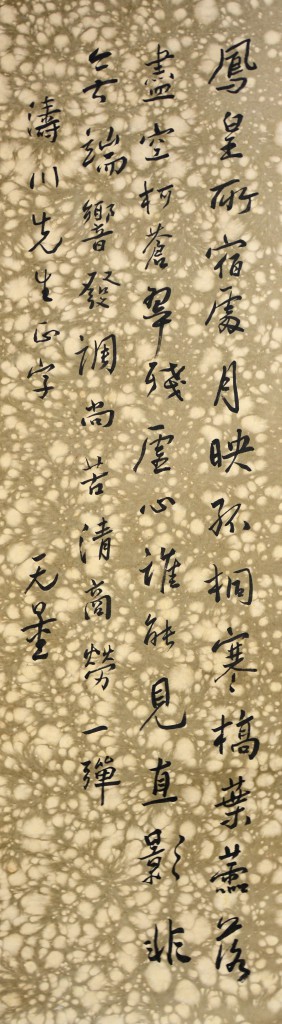 鳳皇所宿處月映孤桐寒槁葉零落
盡空柯蒼翠殘虛心誰能見直影非
無端響發調尚苦清商勞一彈
濤川先生正字
无量